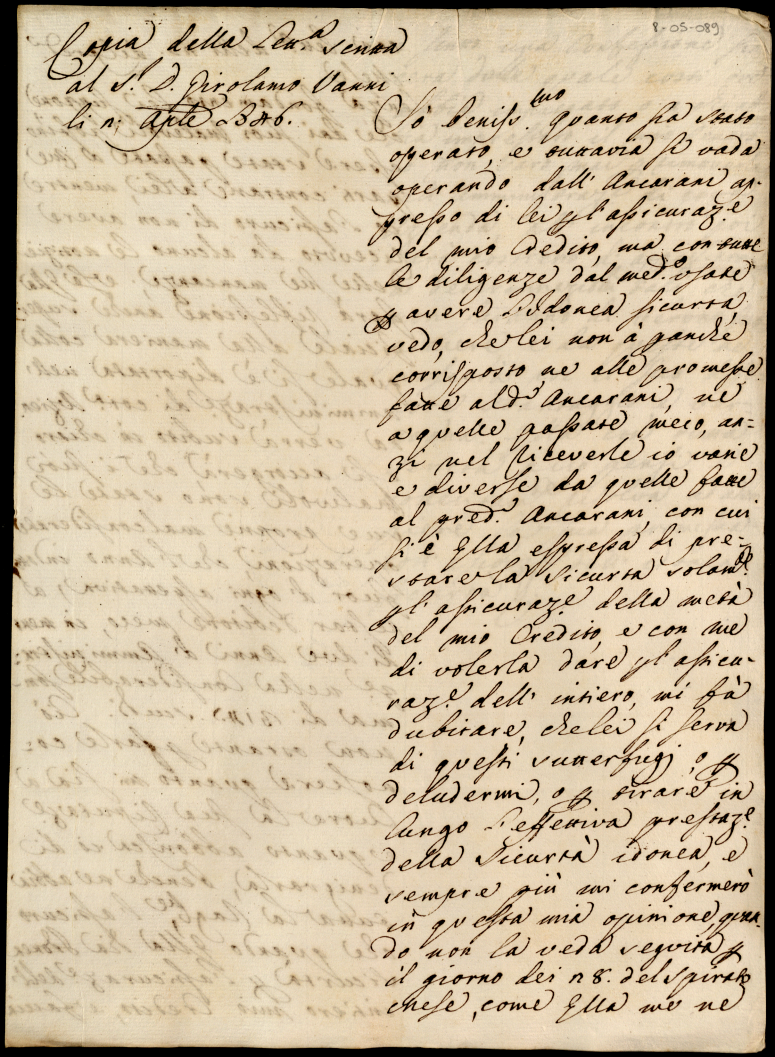 8-05-089
Copia della Lett.a scritta
al S.r D. Girolamo Vanni
li n; Aple 1746.
Sò beniss.mo quanto sia stato
operato, e tuttavia si vada
operando dall' Ancarani ap-
presso di lei p l'assicuraz.e
del mio Credito, ma con tutte
le diligenze dal med.o usate
p avere l'idonea sicurtà,
vedo, che lei non à ganché
corrisposto ne alle promesse
fatte al d.o Ancarani, nè
a quelle passate meco, an-
zi nel riceverle io varie
e diverse da quelle fatte
al pred.o Ancarani, con cui
si è Ella espressa di pre-
stare la sicurtà solam.e
p l'assicuraz.e della metà
del mio Credito, e con me
di volerla dare p l'assicu-
raz.e dell' intiero, mi fà
dubitare, che lei si serva
di questi sutterfugj, o p
deludermi, o p tirare in
lungo l'effettiva prestaz.e
della Sicurtà idonea, e
sempre più mi confermerò
in questa mia opinione, quan-
do non la veda seguita p
il giorno dei n8. del spirato
mese, come Ella me ne